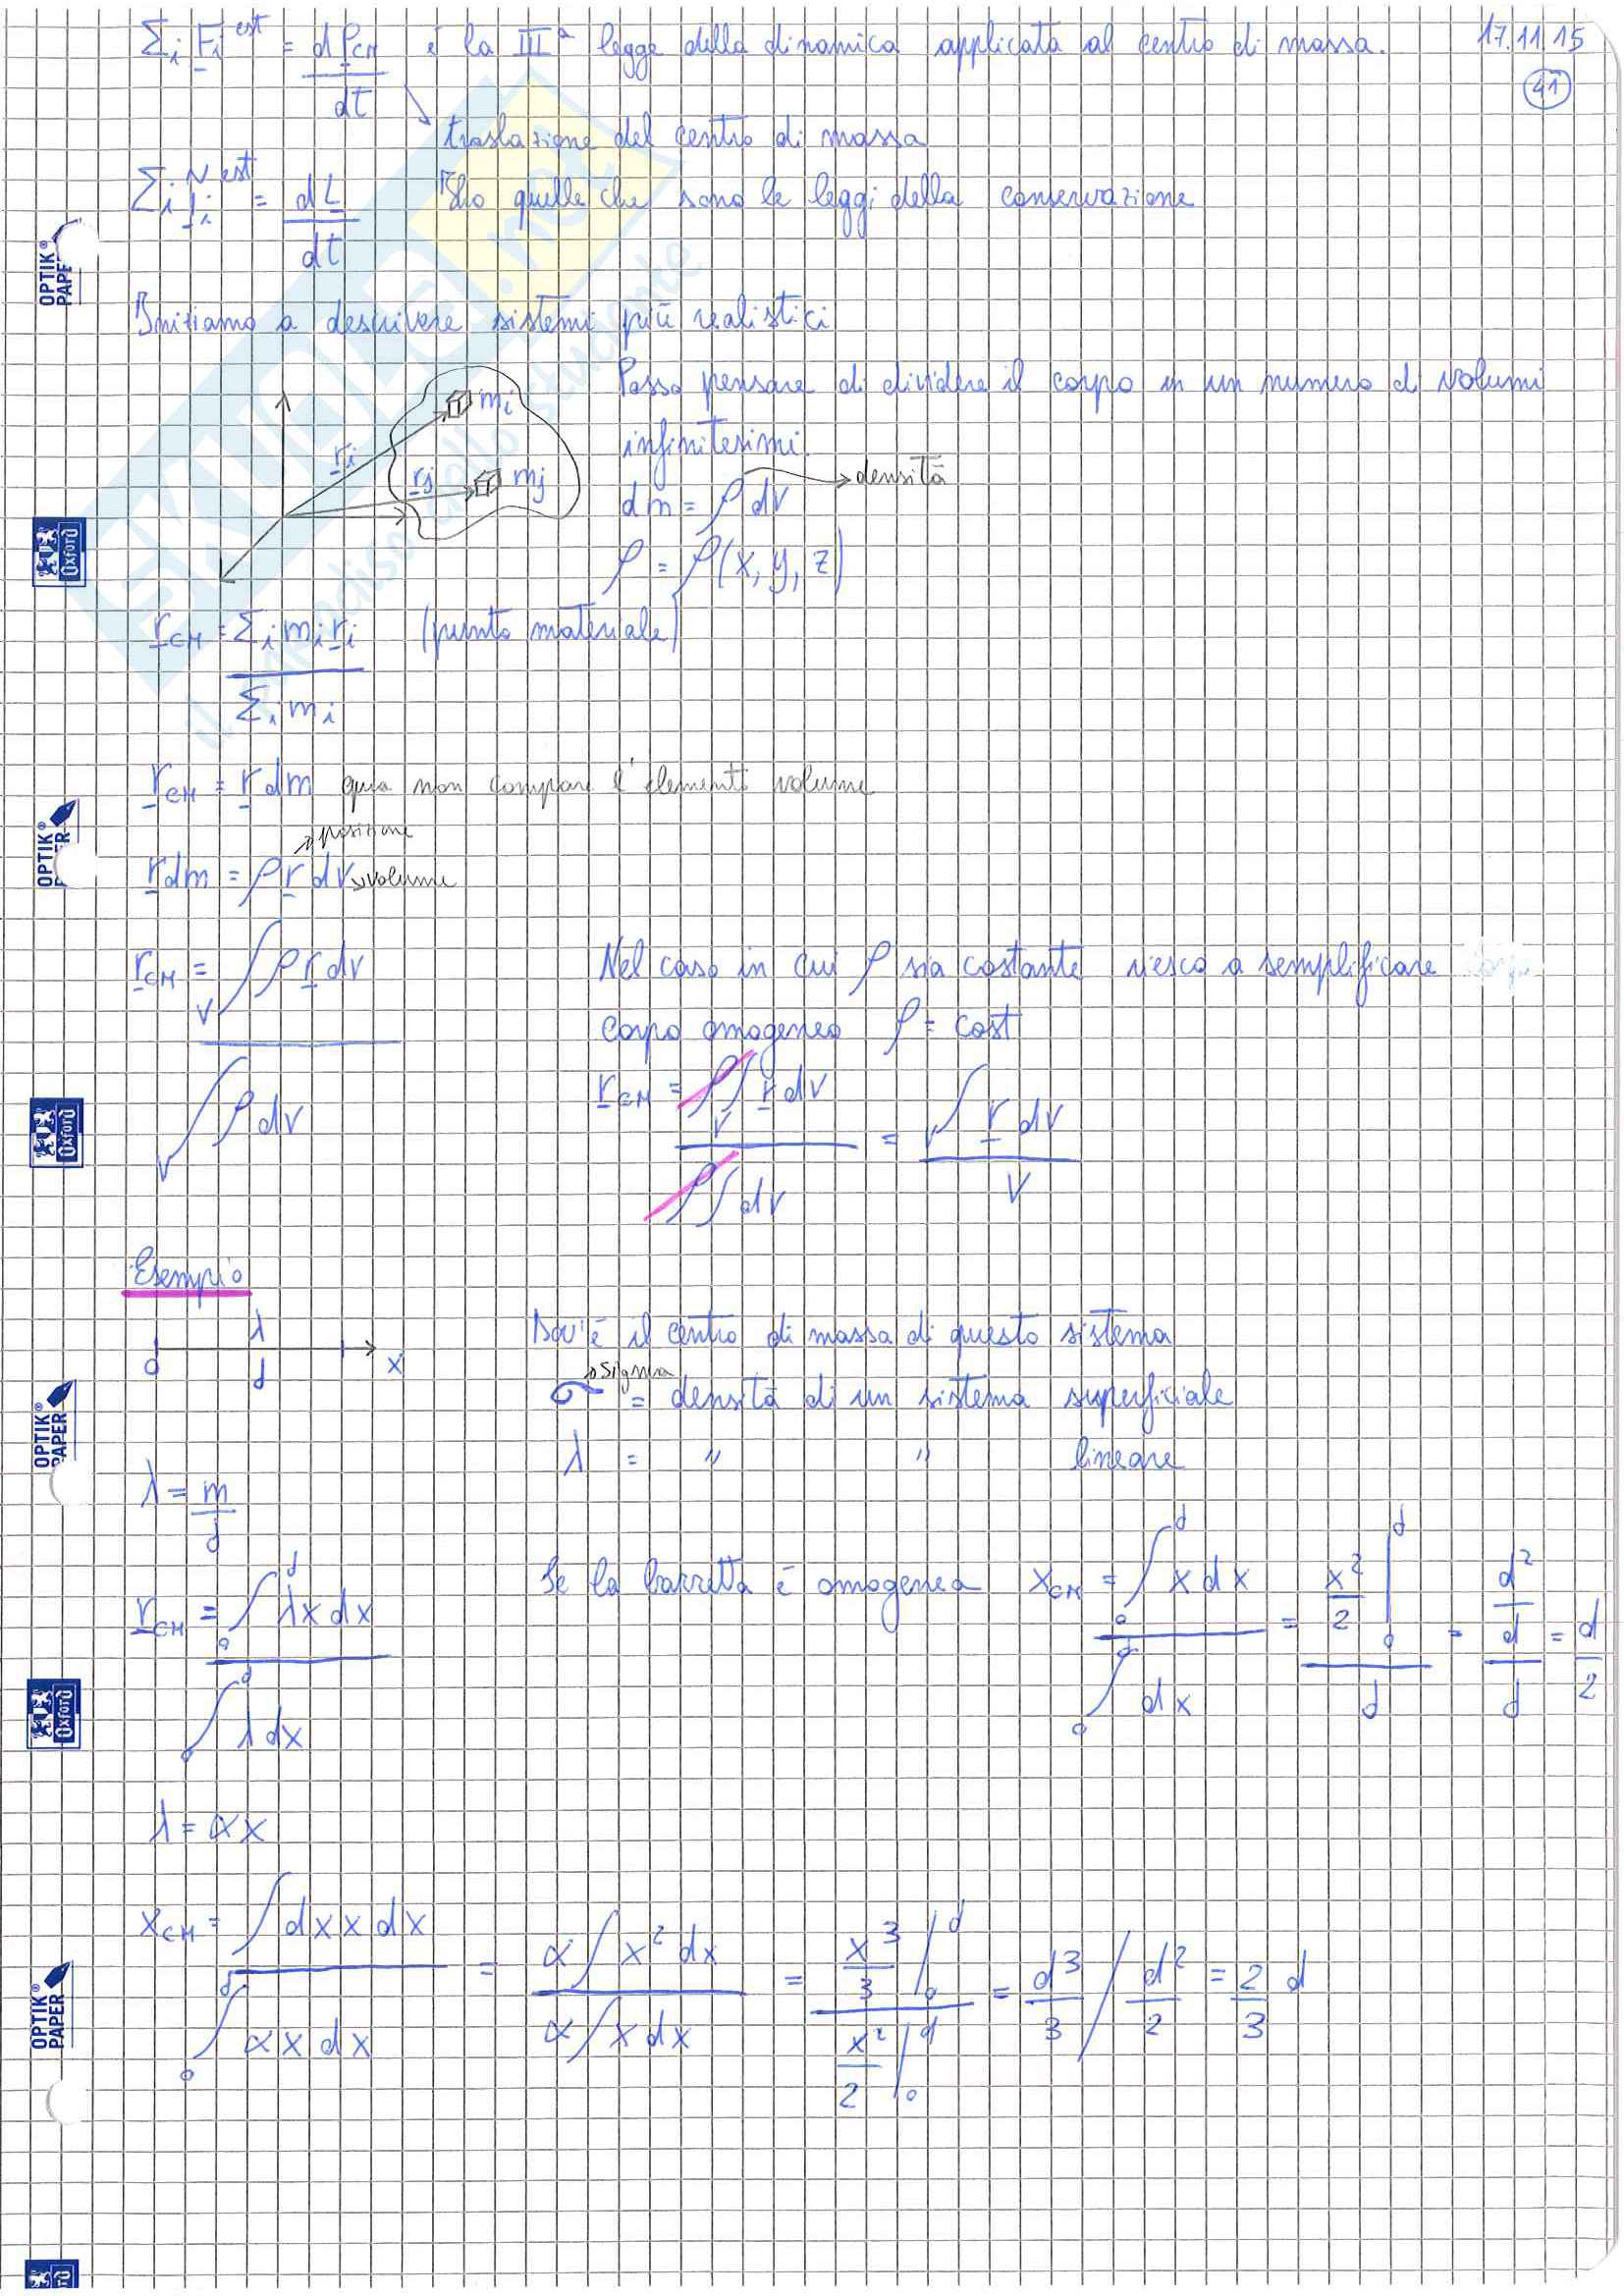 Σi Fi^est = dPCM / dt è la IIIª legge della dinamica applicata al centro di massa. 17.11.15
41
traslazione del centro di massa
Σi τi^est = dL / dt quelle che sono le leggi della conservazione
Iniziamo a descrivere sistemi più realistici
Posso pensare di dividere il corpo in un numero di volumi
infinitesimi.
mi
ri
rj mj
dm = ρ dv → densità
ρ = ρ(x, y, z)
rCM = Σi mi ri / Σi mi (punto materiale)
rCM = r dm qua non compare l'elemento volume
posizione
r dm = ρ r dv volume
rCM = ∫V ρ r dv / ∫V ρ dv
Nel caso in cui ρ sia costante riesco a semplificare
corpo omogeneo ρ = cost
rCM = ρ ∫V r dv / ρ ∫ dv = ∫V r dv / V
Esempio
λ
0 d x
Dov'è il centro di massa di questo sistema
sigma
σ = densità di un sistema superficiale
λ = " " lineare
λ = m / d
rCM = ∫0^d λ x dx / ∫0^d λ dx
Se la barretta è omogenea xCM = ∫0^d x dx / ∫0^d dx = x²/2 |0^d / d = d²/d / d = d/2
λ = αx
xCM = ∫ αx x dx / ∫0^d αx dx = α ∫ x² dx / α ∫ x dx = x³/3 |0^d / x²/2 |0^d = d³/3 / d²/2 = 2/3 d
OPTIK®
PAPER
Oxford
OPTIK®
PAPER
Oxford
OPTIK®
PAPER
Oxford
OPTIK®
PAPER
SKUOLA.net
il paradiso dello studente